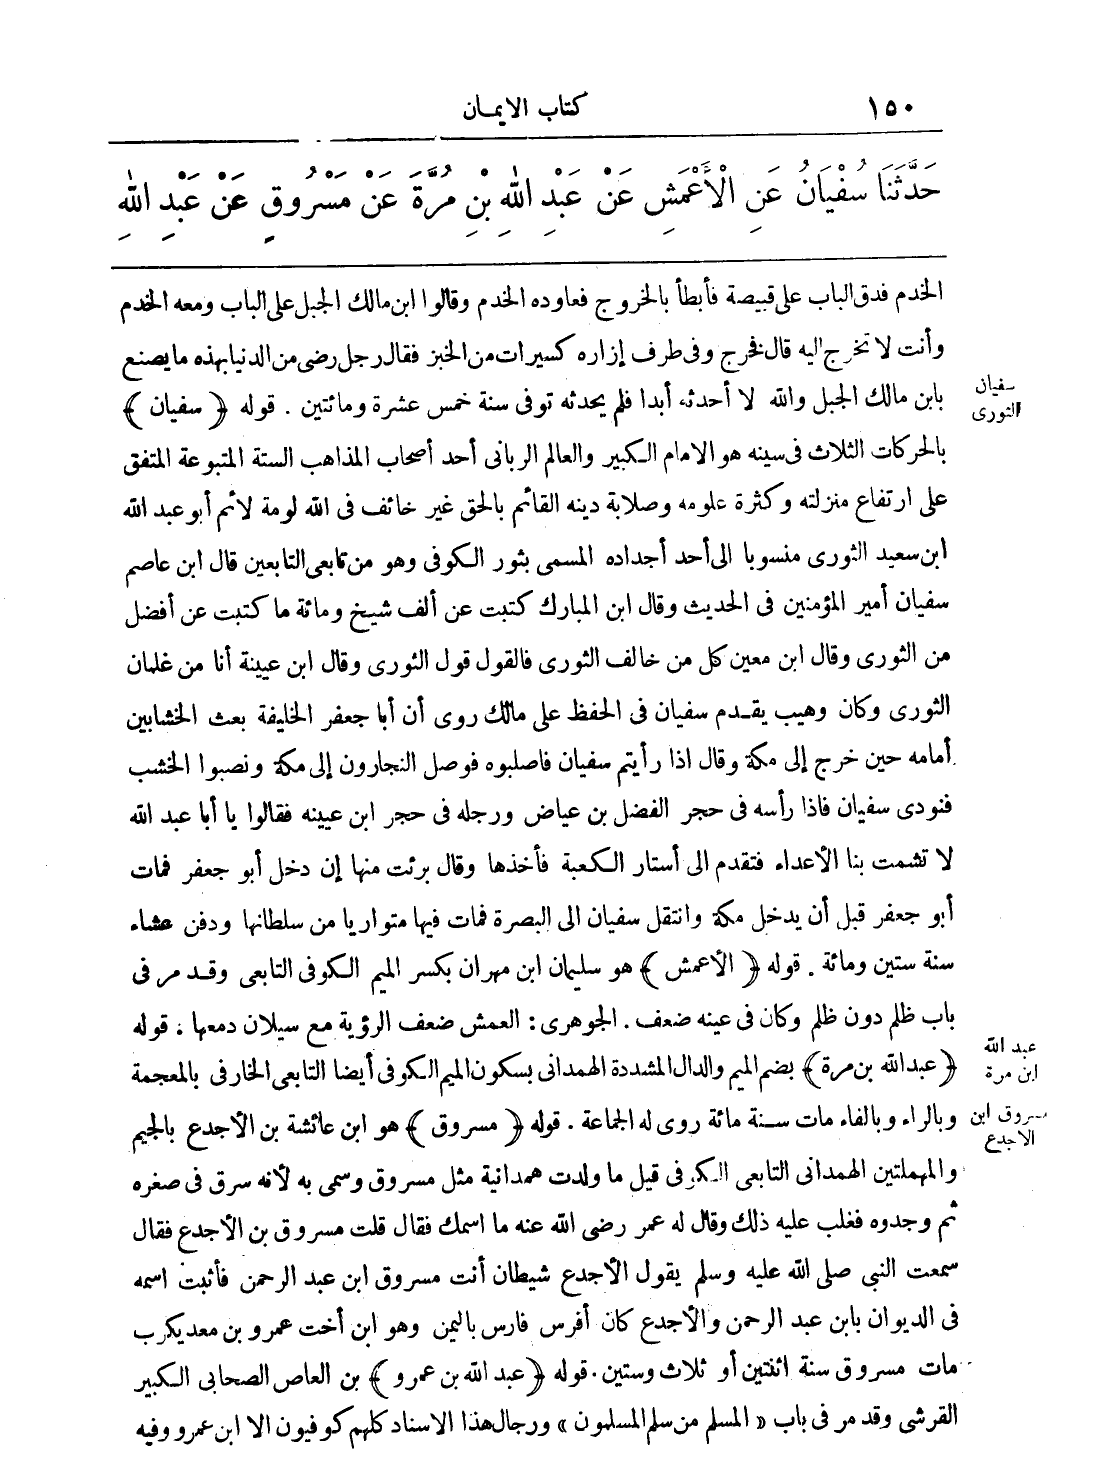 ١٥٠ كتاب الايمان
حَدَّثَنَا سُفْيَانُ عَنِ الْأَعْمَشِ عَنْ عَبْدِ اللهِ بْنِ مُرَّةَ عَنْ مَسْرُوقٍ عَنْ عَبْدِ اللهِ
الخدم فدق الباب على قبيصة فأبطأ بالخروج فعاوده الخدم وقالوا ابن مالك الجبل على الباب ومعه الخدم
وأنت لا تخرج اليه قال فخرج وفى طرف إزاره كسيرات من الخبز فقال رجل رضى من الدنيا بهذه ما يصنع
بابن مالك الجبل والله لا أحدثه أبدا فلم يحدثه توفى سنة خمس عشرة ومائتين . قوله ﴿ سفيان ﴾
سفيان
الثورى
بالحركات الثلاث فى سينه هو الامام الكبير والعالم الربانى أحد أصحاب المذاهب الستة المتبوعة المتفق
على ارتفاع منزلته وكثرة علومه وصلابة دينه القائم بالحق غير خائف فى الله لومة لائم أبو عبد الله
ابن سعيد الثورى منسوبا الى أحد أجداده المسمى بثور الكوفى وهو من تابعى التابعين قال ابن عاصم
سفيان أمير المؤمنين فى الحديث وقال ابن المبارك كتبت عن ألف شيخ ومائة ما كتبت عن أفضل
من الثورى وقال ابن معين كل من خالف الثورى فالقول قول الثورى وقال ابن عيينة أنا من غلمان
الثورى وكان وهيب يقدم سفيان فى الحفظ على مالك روى أن أبا جعفر الخليفة بعث الخشابين
أمامه حين خرج إلى مكة وقال اذا رأيتم سفيان فاصلبوه فوصل النجارون إلى مكة ونصبوا الخشب
فنودى سفيان فاذا رأسه فى حجر الفضل بن عياض ورجله فى حجر ابن عيينه فقالوا يا أبا عبد الله
لا تشمت بنا الأعداء فتقدم الى أستار الكعبة فأخذها وقال برئت منها إن دخل أبو جعفر فمات
أبو جعفر قبل أن يدخل مكة وانتقل سفيان الى البصرة فمات فيها متواريا من سلطانها ودفن عشاء
سنة ستين ومائة . قوله ﴿ الأعمش ﴾ هو سليمان ابن مهران بكسر الميم الكوفى التابعى وقد مر فى
باب ظلم دون ظلم وكان فى عينه ضعف . الجوهرى : العمش ضعف الرؤية مع سيلان دمعها . قوله
عبد الله
ابن مرة
﴿ عبدالله بن مرة ﴾ بضم الميم والدال المشددة الهمدانى بسكون الميم الكوفى أيضا التابعى الخارفى بالمعجمة
وبالراء وبالفاء مات سنة مائة روى له الجماعة . قوله ﴿ مسروق ﴾ هو ابن عائشة بن الأجدع بالجيم
مسروق ابن
الاجدع
والمهملتين الهمدانى التابعى الكوفى قيل ما ولدت همدانية مثل مسروق وسمى به لأنه سرق فى صغره
ثم وجدوه فغلب عليه ذلك وقال له عمر رضى الله عنه ما اسمك فقال قلت مسروق بن الأجدع فقال
سمعت النبي صلى الله عليه وسلم يقول الأجدع شيطان أنت مسروق ابن عبد الرحمن فأثبت اسمه
فى الديوان بابن عبد الرحمن والأجدع كان أفرس فارس باليمن وهو ابن أخت عمرو بن معديكرب
مات مسروق سنة اثنتين أو ثلاث وستين . قوله ﴿ عبد الله بن عمرو ﴾ بن العاص الصحابى الكبير
القرشى وقد مر فى باب « المسلم من سلم المسلمون » ورجال هذا الاسناد كلهم كوفيون الا ابن عمرو وفيه